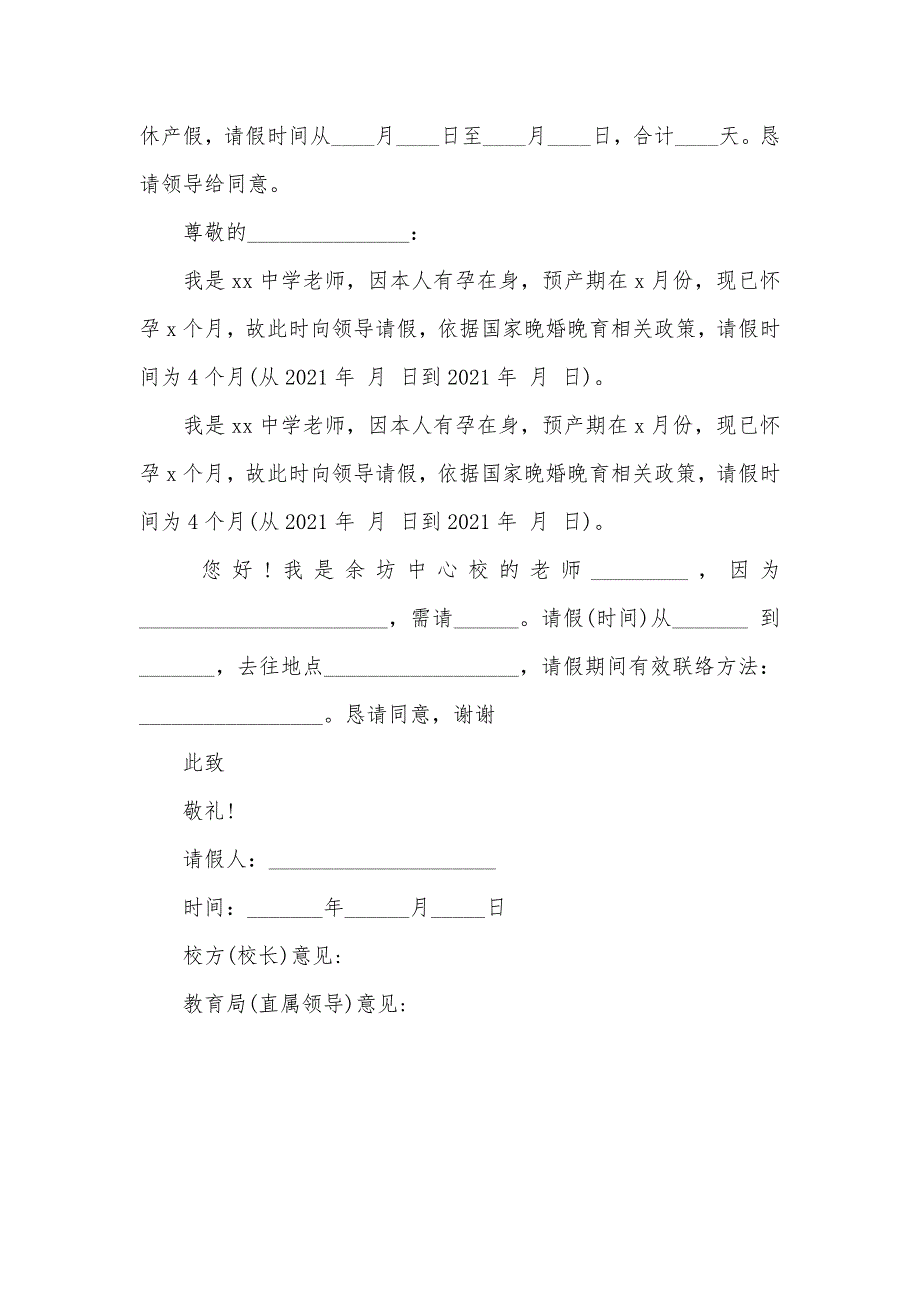 休产假，请假时间从____月____日至____月____日，合计____天。恳
请领导给同意。
尊敬的_______________：
我是 xx 中学老师，因本人有孕在身，预产期在 x 月份，现已怀
孕 x 个月，故此时向领导请假，依据国家晚婚晚育相关政策，请假时
间为 4 个月(从 2021 年 月 日到 2021 年 月 日)。
我是 xx 中学老师，因本人有孕在身，预产期在 x 月份，现已怀
孕 x 个月，故此时向领导请假，依据国家晚婚晚育相关政策，请假时
间为 4 个月(从 2021 年 月 日到 2021 年 月 日)。
您好!我是余坊中心校的老师_________，因为
_______________________，需请______。请假(时间)从_______ 到
_______，去往地点__________________，请假期间有效联络方法：
_________________。恳请同意，谢谢
此致
敬礼!
请假人：_____________________
时间：_______年______月_____日
校方(校长)意见:
教育局(直属领导)意见: